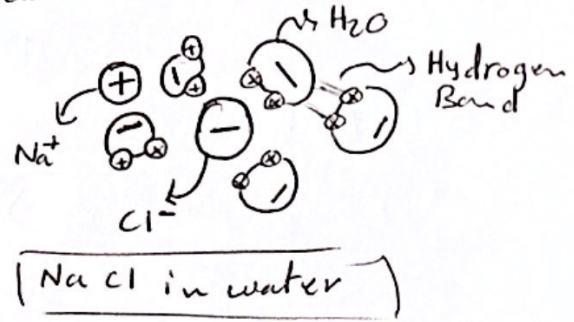 H2O
Hydrogen
Bond
Na+
Cl-
NaCl in water